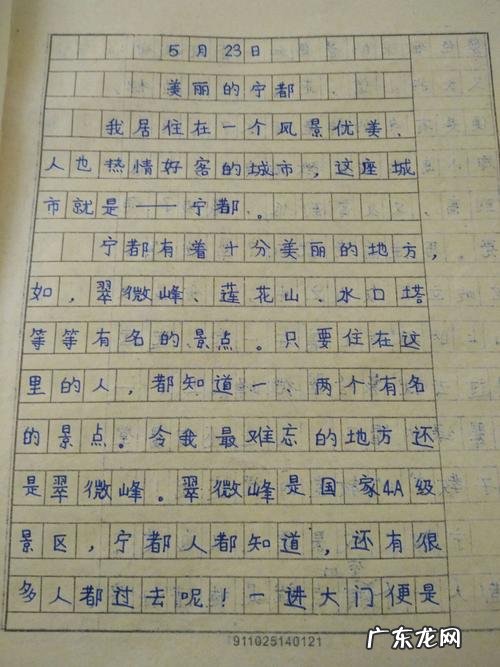 5月23日
美丽的宁都
我居住在一个风景优美、
人也热情好客的城市，这座城
市就是——宁都。
宁都有着十分美丽的地方，
如，翠微峰、莲花山、水口塔
等等有名的景点。只要住在这
里的人，都知道一、两个有名
的景点。令我最难忘的地方还
是翠微峰。翠微峰是国家4A级
景区，宁都人都知道，还有很
多人都过去呢！一进大门便是
911025140121
广东龙网